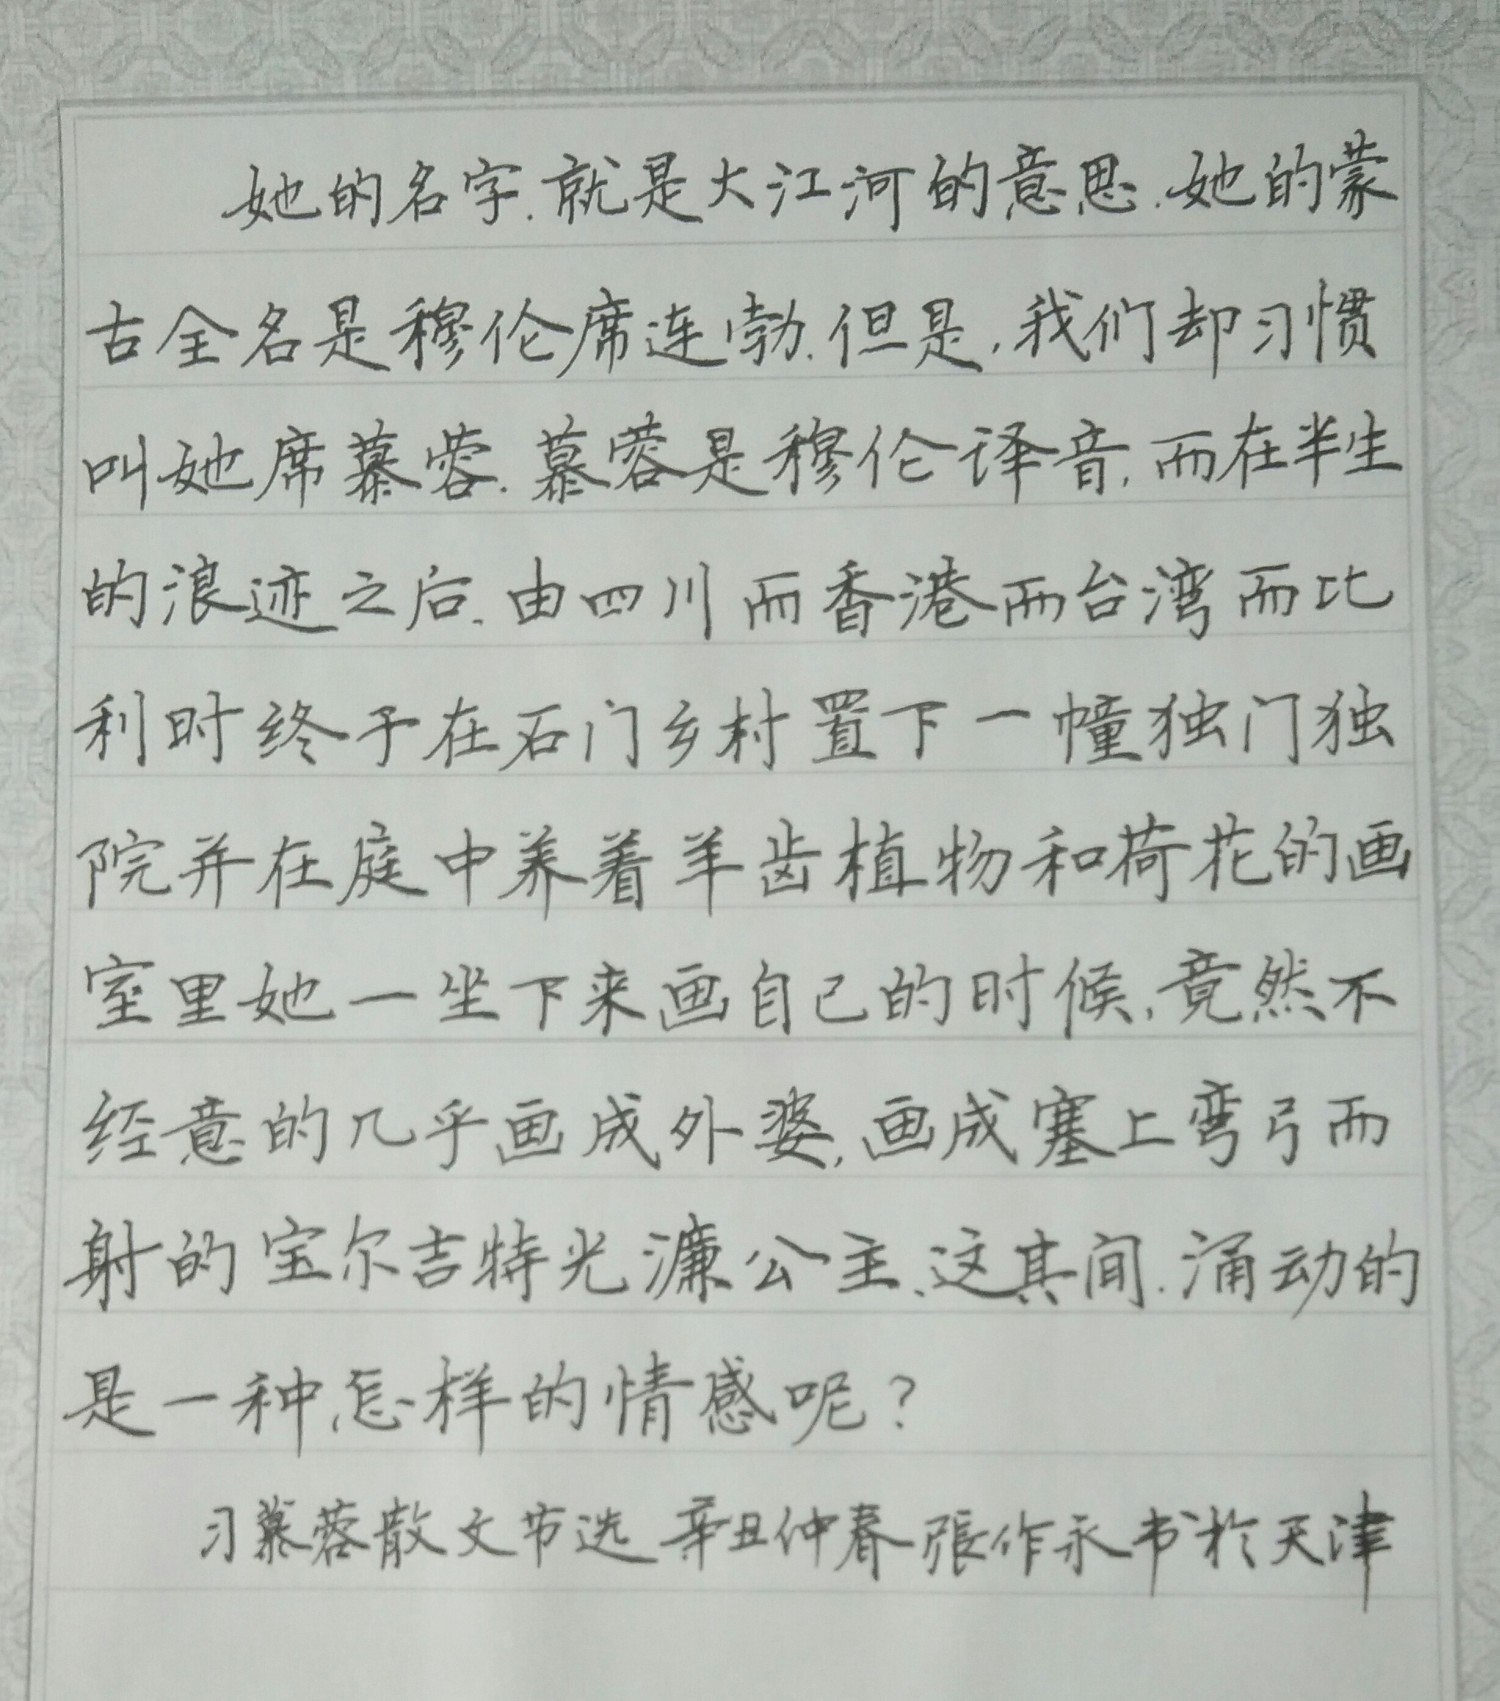 她的名字.就是大江河的意思.她的蒙
古全名是穆伦席连勃.但是,我们却习惯
叫她席慕蓉.慕蓉是穆伦译音,而在半生
的浪迹之后.由四川而香港而台湾而比
利时终于在石门乡村置下一幢独门独
院并在庭中养着羊齿植物和荷花的画
室里她一坐下来画自己的时候,竟然不
经意的几乎画成外婆,画成塞上弯弓而
射的宝尔吉特光濂公主、这其间.涌动的
是一种,怎样的情感呢?
习慕蓉散文节选 辛丑仲春張作永书於天津